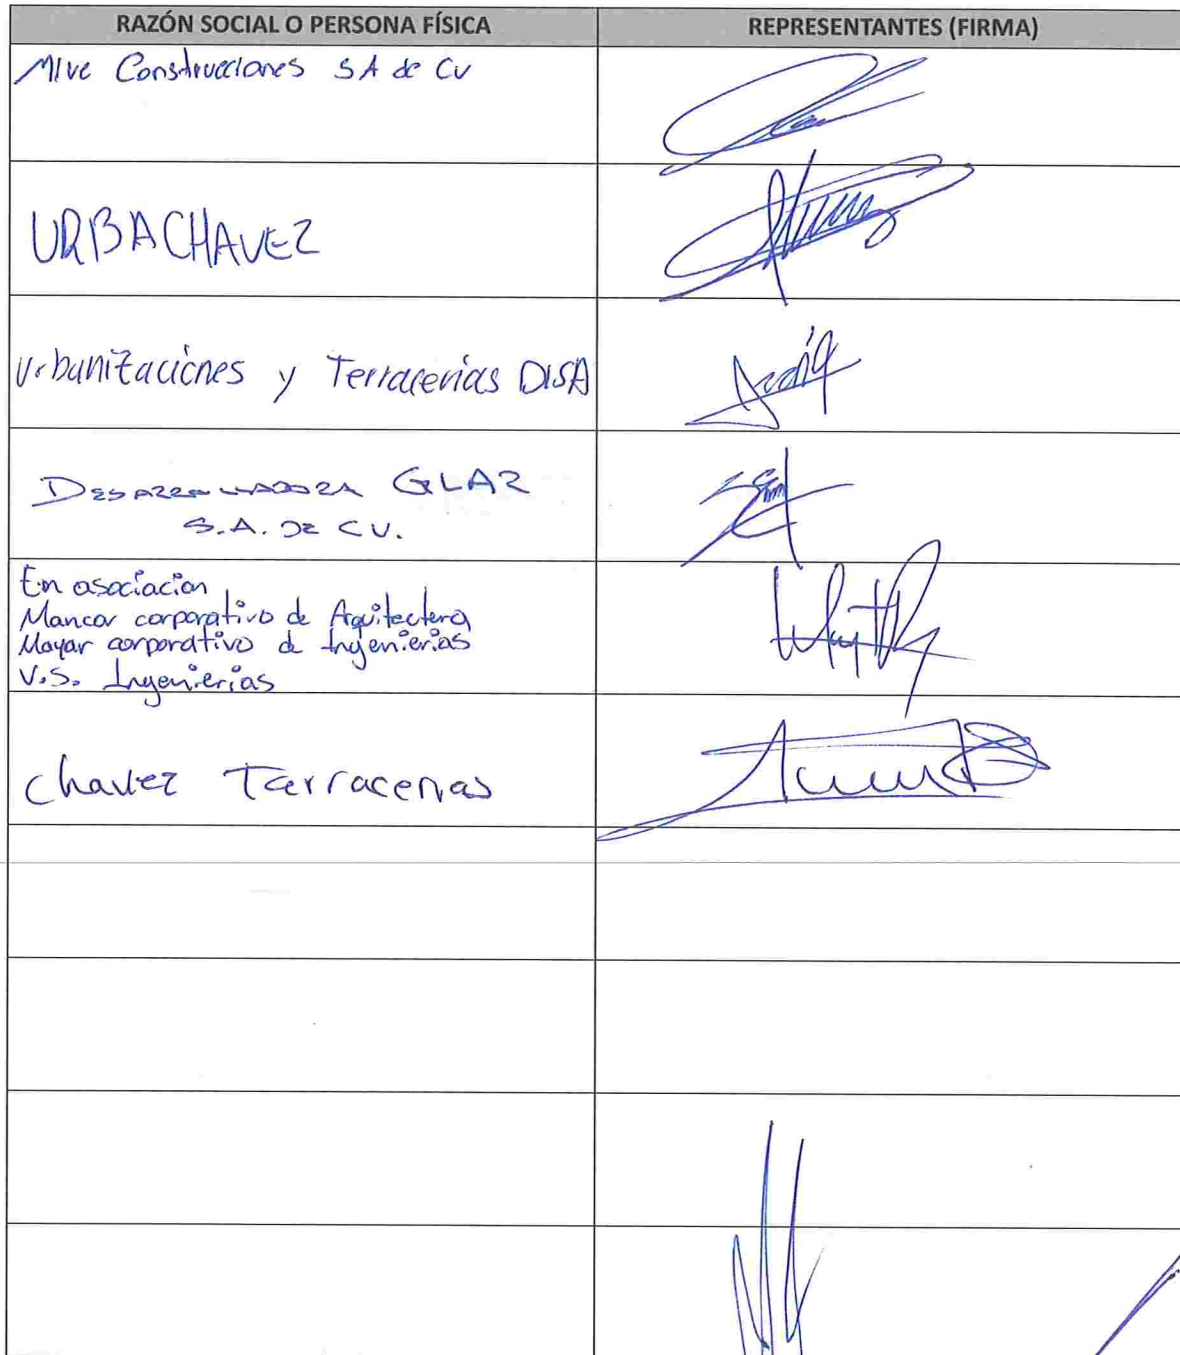 RAZÓN SOCIAL O PERSONA FÍSICA
REPRESENTANTES (FIRMA)
Mive Construcciones SA de CV
URBACHAVEZ
Urbanizaciones y Terracerias DISA
DESARROLLADORA GLAR
S.A. DE C.V.
En asociación
Mancor corporativo de Arquitectura
Mayar corporativo de Ingenierías
V.S. Ingenierías
Chavez Terracerias